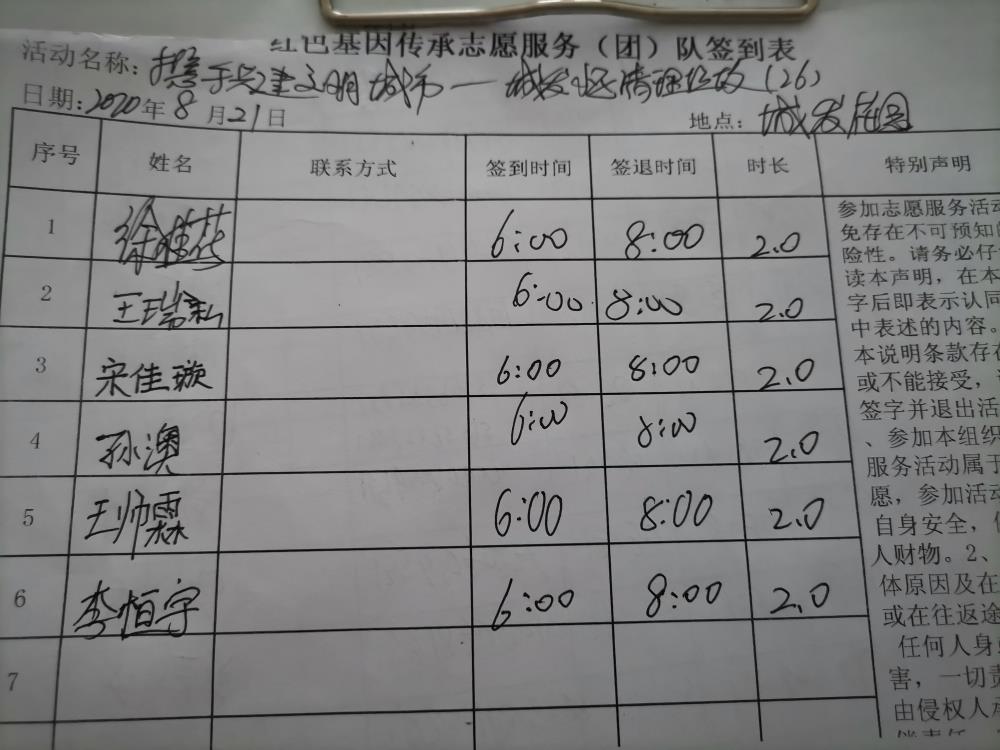 红色基因传承志愿服务（团）队签到表
活动名称：携手共建文明城市—城发清理（26）
日期：2020年8月21日
地点：城发花园
序号 姓名 联系方式 签到时间 签退时间 时长 特别声明
1 6:00 8:00 2.0
2 王瑞 6:00 8:00 2.0
3 宋佳璇 6:00 8:00 2.0
4 孙澳 6:00 8:00 2.0
5 王帅霖 6:00 8:00 2.0
6 李恒宇 6:00 8:00 2.0
7
参加志愿服务活动
免存在不可预知的
险性。请务必仔
读本声明，在本
字后即表示认同
中表述的内容。
本说明条款存在
或不能接受，
签字并退出活
、参加本组织
服务活动属于
愿，参加活动
自身安全，
人财物。2、
体原因及在
或在往返途
任何人身
害，一切责
由侵权人承